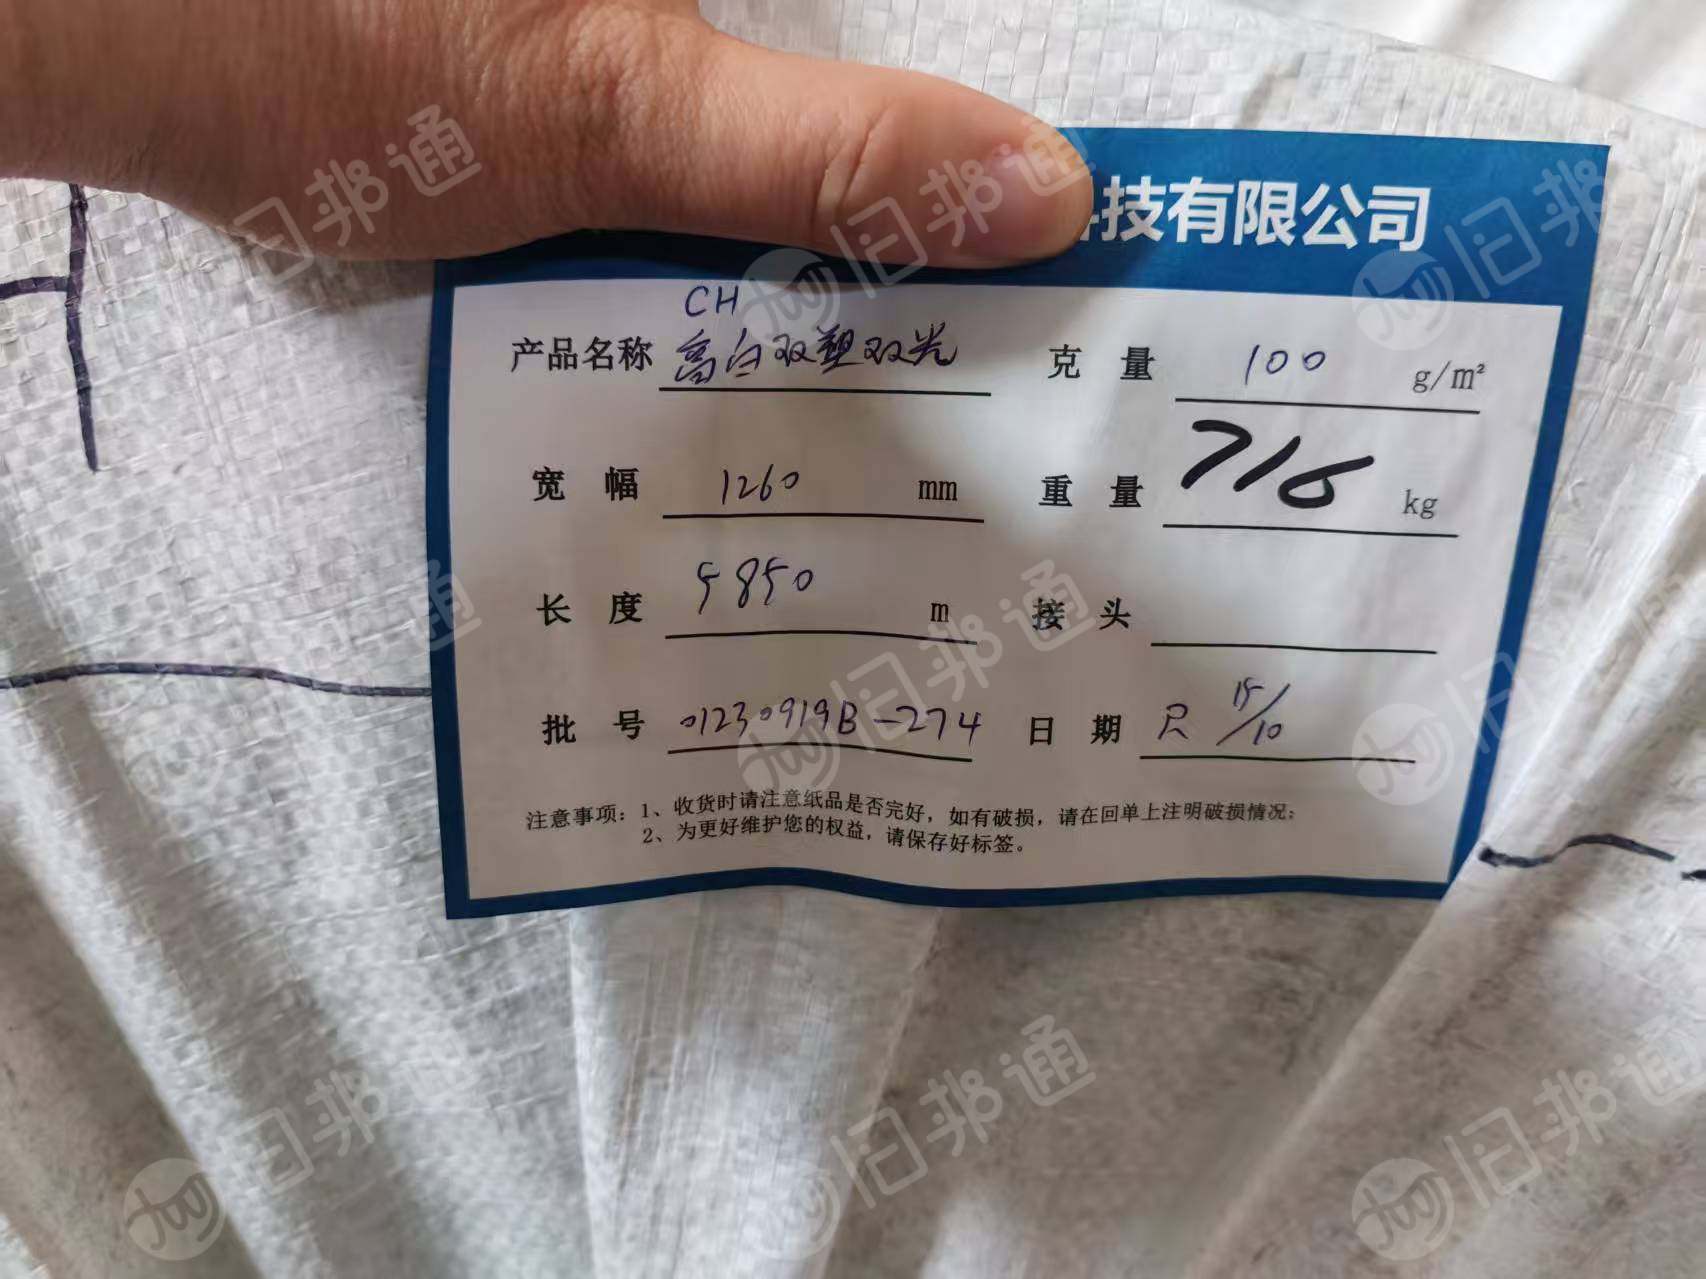 技有限公司
CH
产品名称 高白双塑双光 克量 100 g/m²
宽幅 1260 mm 重量 716 kg
长度 5850 m 接头
批号 01230919B-274 日期 尺 15/10
注意事项：1、收货时请注意纸品是否完好，如有破损，请在回单上注明破损情况；
2、为更好维护您的权益，请保存好标签。
旧邦通